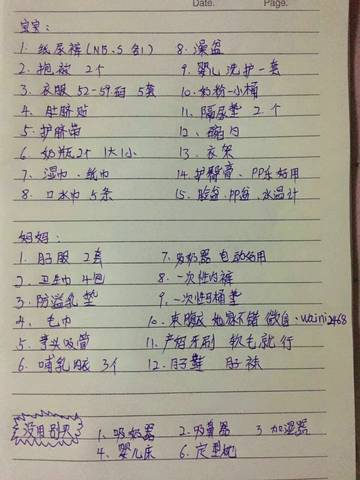 Date. Page.
宝宝:
1. 纸尿裤(NB.S 各1) 8. 澡盆
2. 抱被 2个 9. 婴儿洗护一套
3. 衣服 52-59码 5套 10. 奶粉一小桶
4. 肚脐贴 11. 隔尿垫 2个
5. 护脐带 12.
6. 奶瓶2个 1大1小 13. 衣架
7. 湿巾.纸巾 14. 护臀膏. PP乐好用
8. 口水巾 5条 15. 脸盆.PP盆.水温计
妈妈:
1. 月子服 2套 7. 吸奶器 电动好用
2. 卫生巾 4包 8. 一次性内裤
3. 防溢乳垫 9. 一次性马桶垫
4. 毛巾 10. 束腹衣 她家不错 微信:
5. 弯头吸管 11. 产妇牙刷 软毛就行
6. 哺乳衣 3个 12. 月子鞋 月子袜
没用别买 1. 吸奶器 2. 吸鼻器 3 加湿器
4. 婴儿床 6. 定型枕